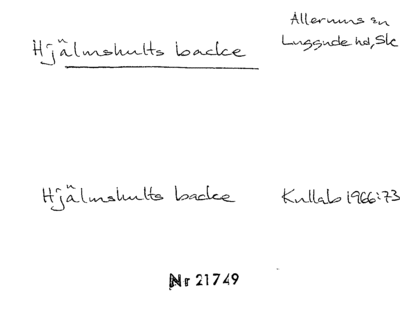 Allerums sn
Hjälmshults backe
Luggude hd, Sk
Hjälmshults backe
Kullab 1966:73
Nr 21749